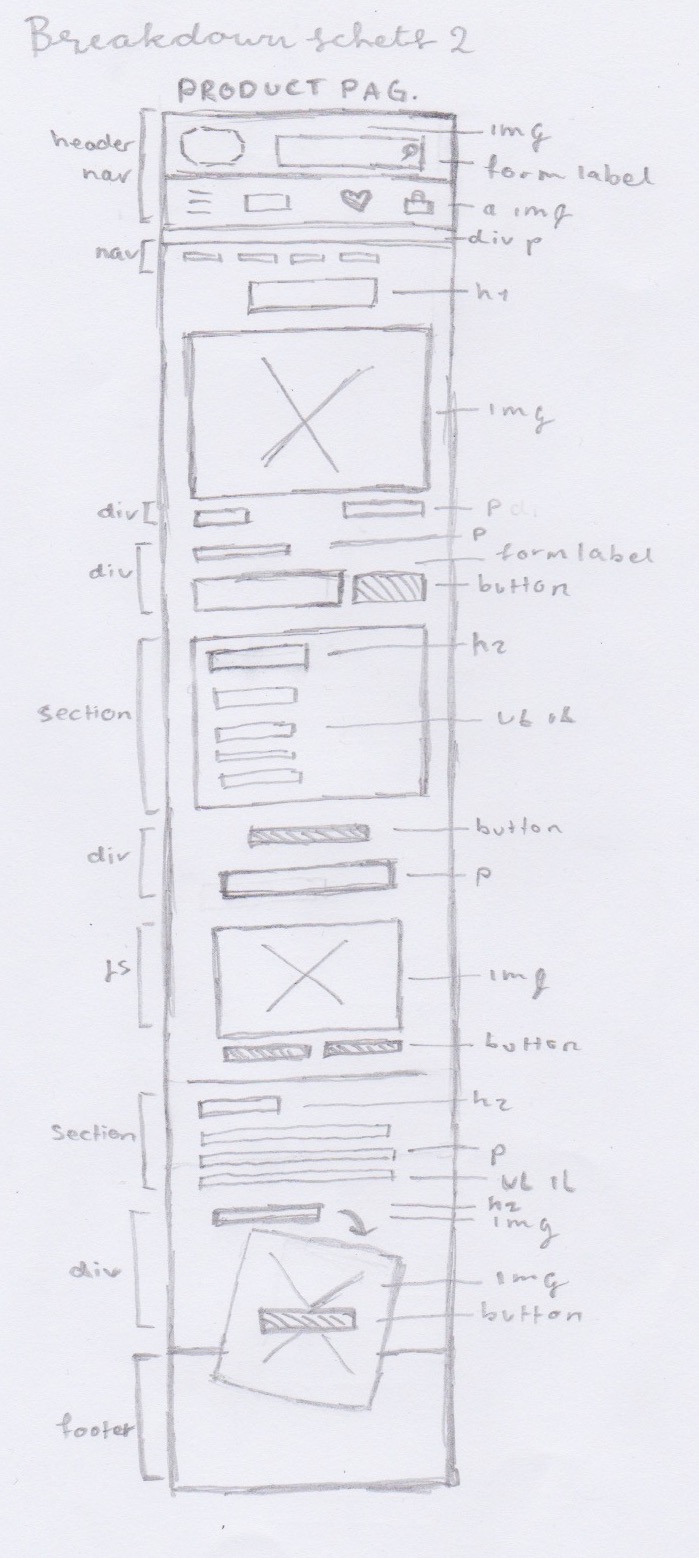 Breakdown schets 2
PRODUCT PAG.
header
nav
img
form label
a img
div p
nav
h1
img
div
p
p
form label
div
button
h2
section
ul li
button
div
p
JS
img
button
h2
section
p
ul li
h2
img
div
img
button
footer